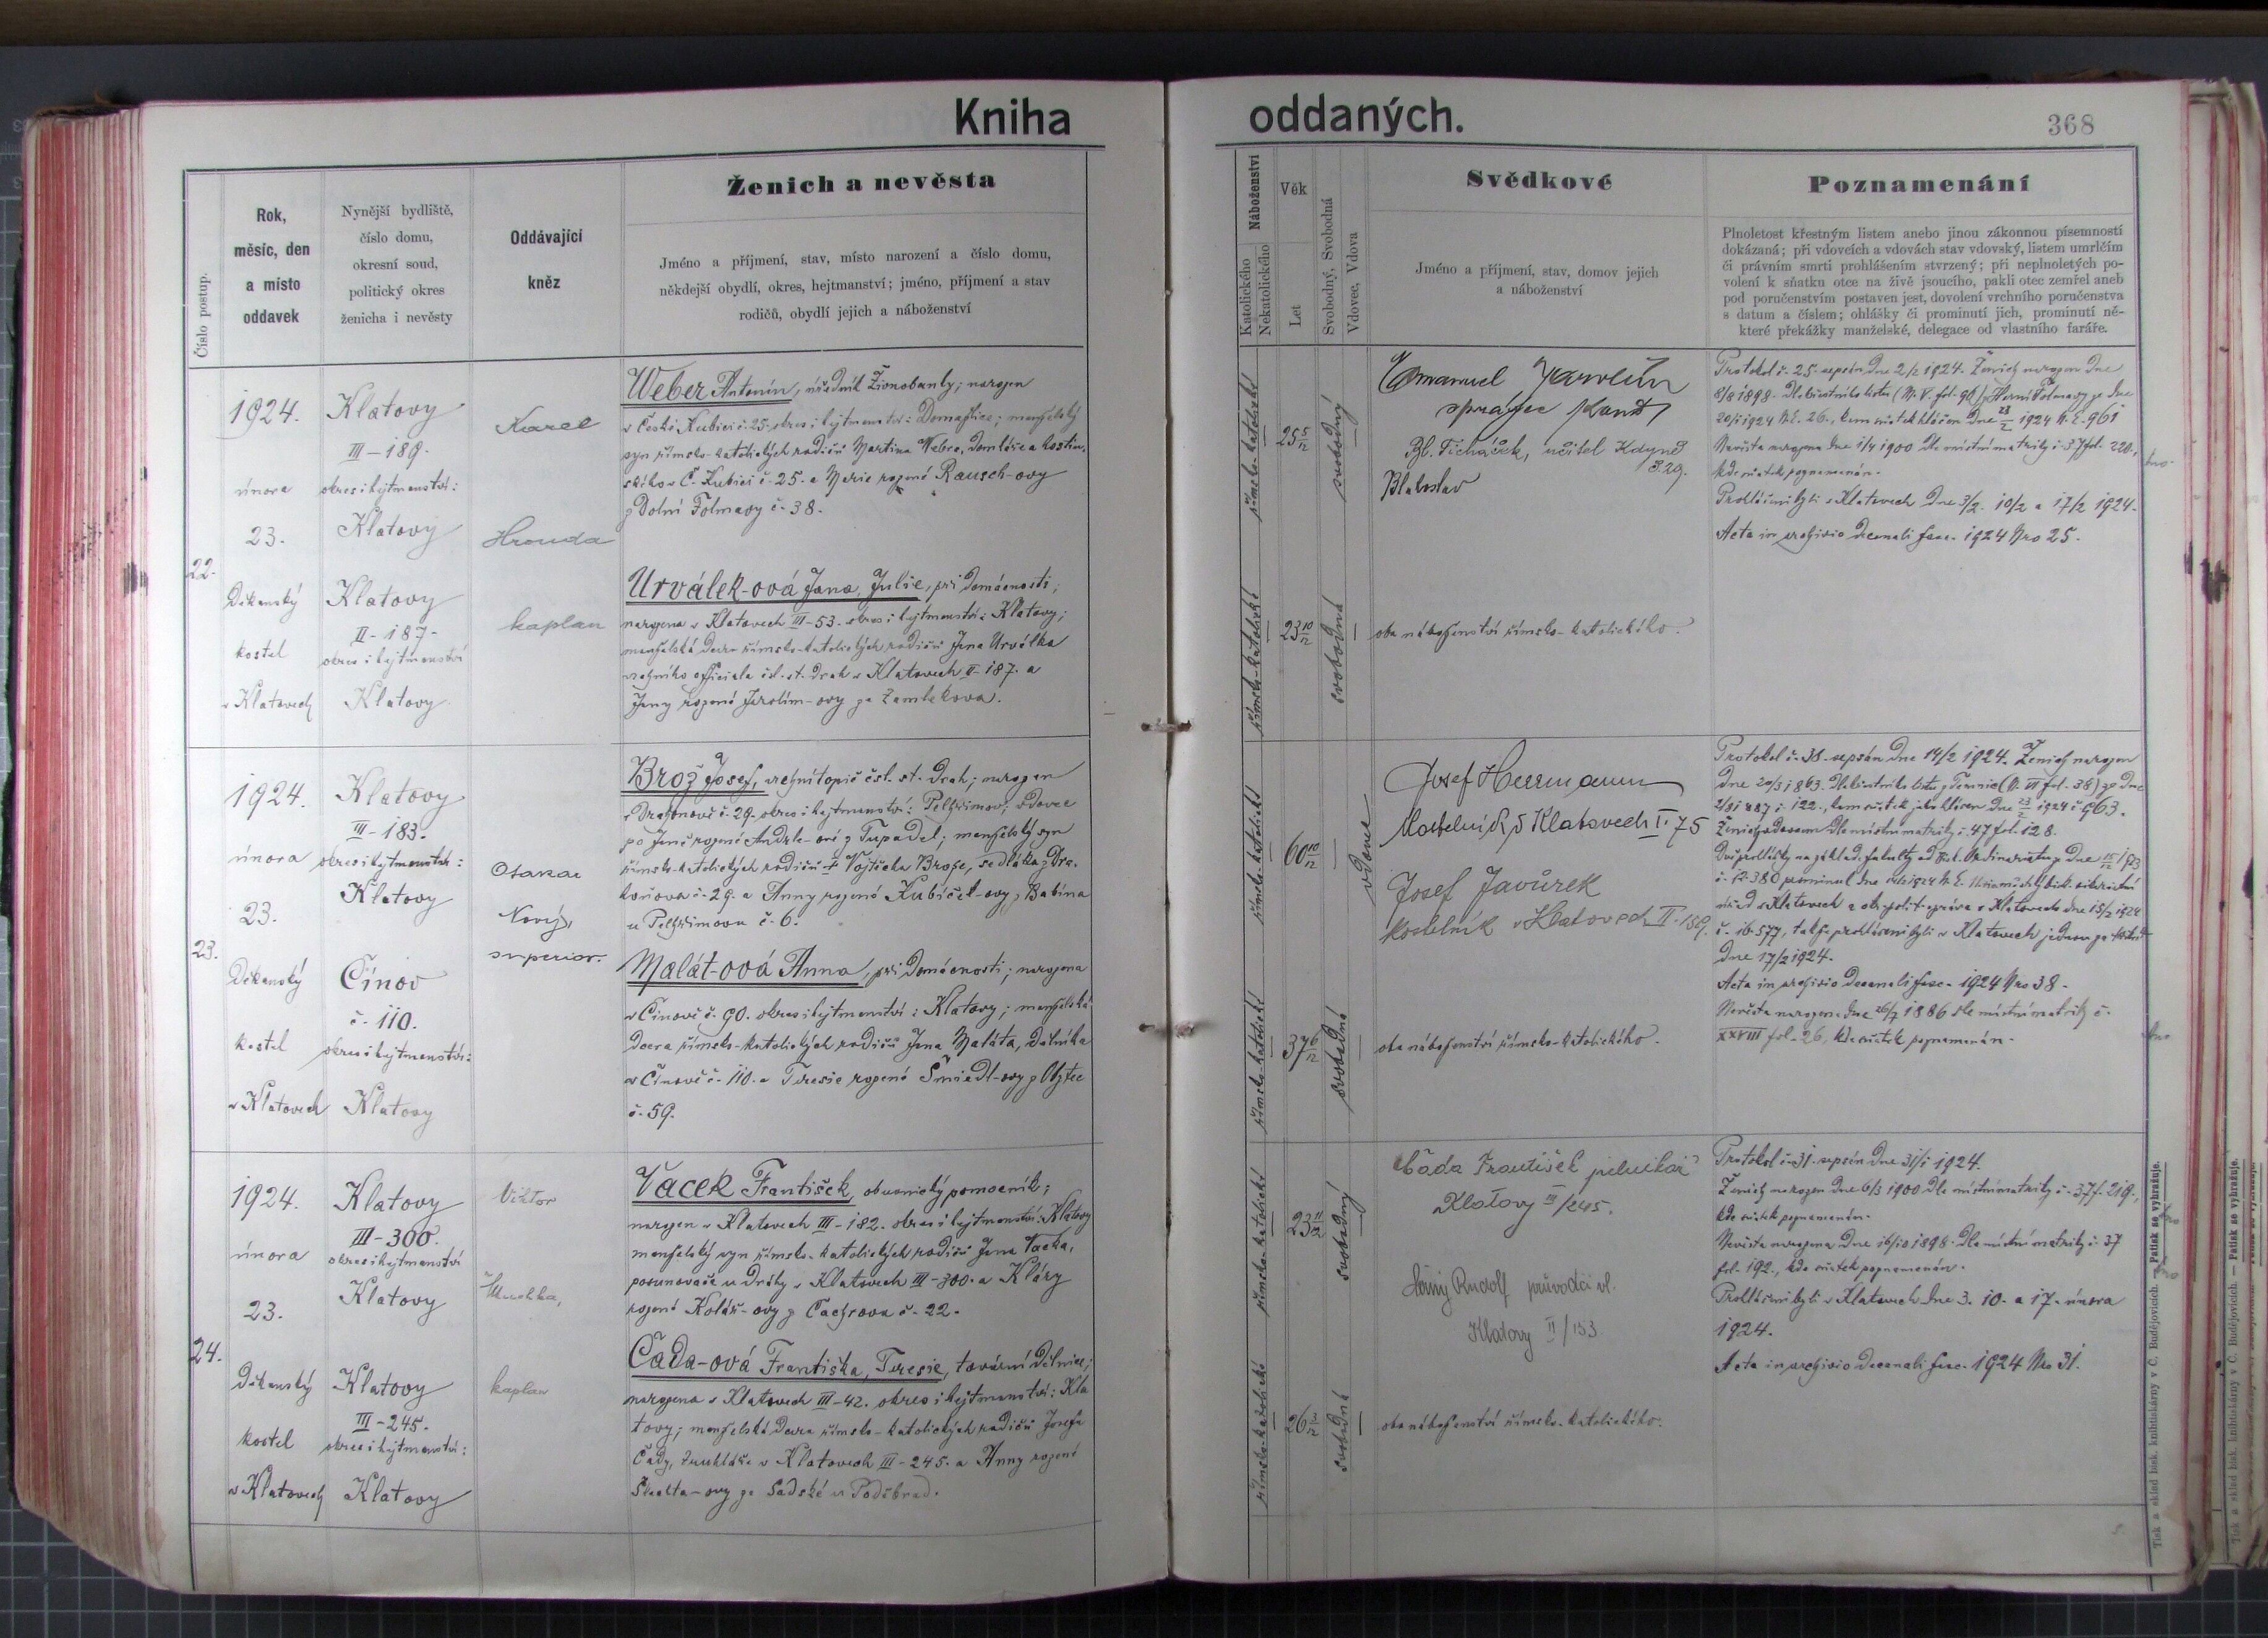 Kniha
oddaných.
368
Číslo postup.
Rok,
měsíc, den
a místo
oddavek
Nynější bydliště,
číslo domu,
okresní soud,
politický okres
ženicha i nevěsty
Oddávající
kněz
Ženich a nevěsta
Jméno a příjmení, stav, místo narození a číslo domu,
někdejší obydlí, okres, hejtmanství; jméno, příjmení a stav
rodičů, obydlí jejich a náboženství
Náboženství
Katolického
Nekatolického
Věk
Let
Svobodný, Svobodná
Vdovec, Vdova
Svědkové
Jméno a příjmení, stav, domov jejich
a náboženství
Poznamenání
Plnoletost křestným listem anebo jinou zákonnou písemností
dokázaná; při vdovcích a vdovách stav vdovský, listem umrlčím
či právním smrti prohlášením stvrzený; při neplnoletých po-
volení k sňatku otce na živě jsoucího, pakli otec zemřel aneb
pod poručenstvím postaven jest, dovolení vrchního poručenstva
s datum a číslem; ohlášky či prominutí jich, prominutí ně-
které překážky manželské, delegace od vlastního faráře.
22.
1924.
února
23.
Děkanský
kostel
v Klatovech
Klatovy
III-189.
okres i hejtmanství:
Klatovy
Klatovy
II-187-
okres i hejtmanství
Klatovy
Karel
Hrouda
kaplan
Weber Antonín, úředník Živnobanky; narozen
v České Kubici č. 25. okres i hejtmanství: Domažlice; manželský
syn římsko-katolických rodičů Martina Webra, domkáře a hostin-
ského v Č. Kubici č. 25. a Marie rozené Rausch-ovy
z Dolní Folmavy č. 38.
Urválek-ová Jana, Julie, při domácnosti;
narozena v Klatovech III-53. okres i hejtmanství: Klatovy;
manželská dcera římsko-katolických rodičů Jana Urválka
vrchního officiala čsl. st. drah v Klatovech II-187. a
Jany rozené Jarolím-ovy ze Žamlekova.
římsko-katolické
25 5/12
svobodný
římsko-katolické
23 10/12
svobodná
Emanuel Jarolím
správce
Bl. Ticháček, učitel Kdyně
č. 29.
Blahoslav
oba náboženství římsko-katolického.
Protokol č. 25. sepsán dne 2/2 1924. Ženich narozen dne
8/9 1898. Dle křestního listu (M. V. fol. 96) z Horní Folmavy ze dne
20/1 1924 N. E. 26., kam sňatek hlášen dne 23/2 1924 N. E. 961
Nevěsta narozena dne 1/4 1900 dle místní matriky č. 37 fol. 220.,
kde sňatek poznamenán.
Prohlášeni byli v Klatovech dne 3/2. 10/2 a 17/2 1924.
Acta in archivio decanali fasc. 1924 Nro 25.
23.
1924.
února
23.
Děkanský
kostel
v Klatovech
Klatovy
III-183.
okres i hejtmanství:
Klatovy
Činov
č. 110.
okres i hejtmanství:
Klatovy
Otakar
Nový,
superior.
Brož Josef, vrchní topič čsl. st. drah; narozen
v Drahoňově č. 29. okres i hejtmanství: Pelhřimov; vdovec
po Janě rozené Andrle-ové z Tupadel; manželský syn
římsko-katolických rodičů † Vojtěcha Brože, sedláka z Dra-
hoňova č. 29. a Anny rozené Kubíček-ovy z Babína
u Pelhřimova č. 6.
Malát-ová Anna, při domácnosti; narozena
v Činově č. 90. okres i hejtmanství: Klatovy; manželská
dcera římsko-katolických rodičů Jana Maláta, dělníka
v Činově č. 110. a Terezie rozené Šmiedl-ovy z Obytec
č. 59.
římsko-katolické
60 10/12
vdovec
římsko-katolické
37 6/12
svobodná
Josef Herrmann
Kostelník v Klatovech I. 75
Josef Javůrek
kostelník v Klatovech II. 159.
oba náboženství římsko-katolického.
Protokol č. 38. sepsán dne 14/2 1924. Ženich narozen
dne 20/3 1863. Dle křestního listu z Temnice (M. VI fol. 38) ze dne
2/8 1887 č. 122., kam sňatek je hlášen dne 23/2 1924 č. 963.
Ženich vdovcem dle místní matriky č. 47 fol. 128.
č. 16.577, takže prohlášeni byli v Klatovech jednou za třikrát
dne 17/2 1924.
Acta in archivio decanali fasc. 1924 Nro 38.
Nevěsta narozena dne 26/7 1886 dle místní matriky č.
XXVIII fol. 26, kde sňatek poznamenán.
24.
1924.
února
23.
Děkanský
kostel
v Klatovech
Klatovy
III-300.
okres i hejtmanství
Klatovy
Klatovy
III-245.
okres i hejtmanství:
Klatovy
Viktor
kaplan
Vacek František, obuvnický pomocník;
narozen v Klatovech III-182. okres i hejtmanství: Klatovy
manželský syn římsko-katolických rodičů Jana Vacka,
posunovače u dráhy v Klatovech III-300. a Kláry
rozené Kolář-ovy z Čachrova č. 22.
Čada-ová Františka, Terezie, tovární dělnice;
narozena v Klatovech III-42. okres i hejtmanství: Kla
tovy; manželská dcera římsko-katolických rodičů Josefa
Čady, truhláře v Klatovech III-245. a Anny rozené
Šlechta-ovy ze Sadské u Poděbrad.
římsko-katolické
23 11/12
svobodný
římsko-katolické
svobodná
Čada František pilníkář
Klatovy III/245.
Rudolf průvodčí vl.
Klatovy II/153
oba náboženství římsko-katolického.
Protokol č. 31. sepsán dne 31/1 1924.
Ženich narozen dne 6/3 1900 dle místní matriky č. 37 f. 219.,
kde sňatek poznamenán.
Nevěsta narozena dne 16/10 1898. dle místní matriky č. 37
fol. 192., kde sňatek poznamenán.
Prohlášeni byli v Klatovech dne 3. 10. a 17. února
1924.
Acta in archivio decanali fasc. 1924 Nro 31.
Tisk a sklad bisk. knihtiskárny v Č. Budějovicích. — Patisk se vyhražuje.